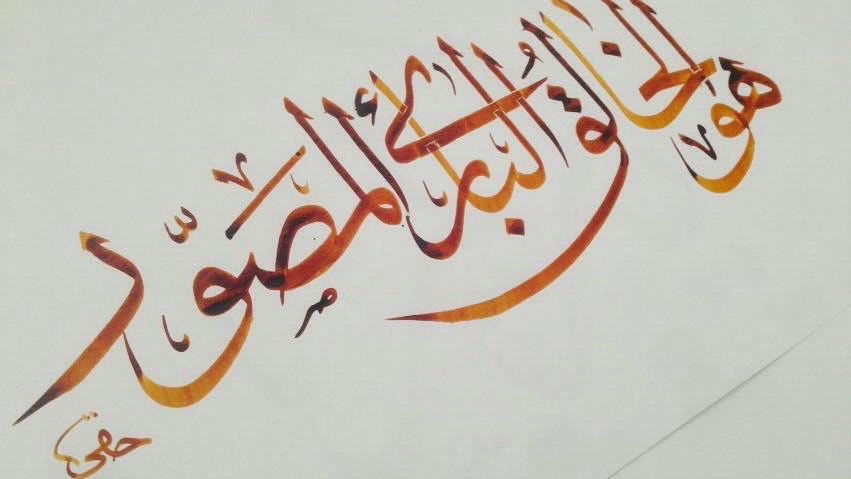 هو الخالق البارئ المصوّر
حقي